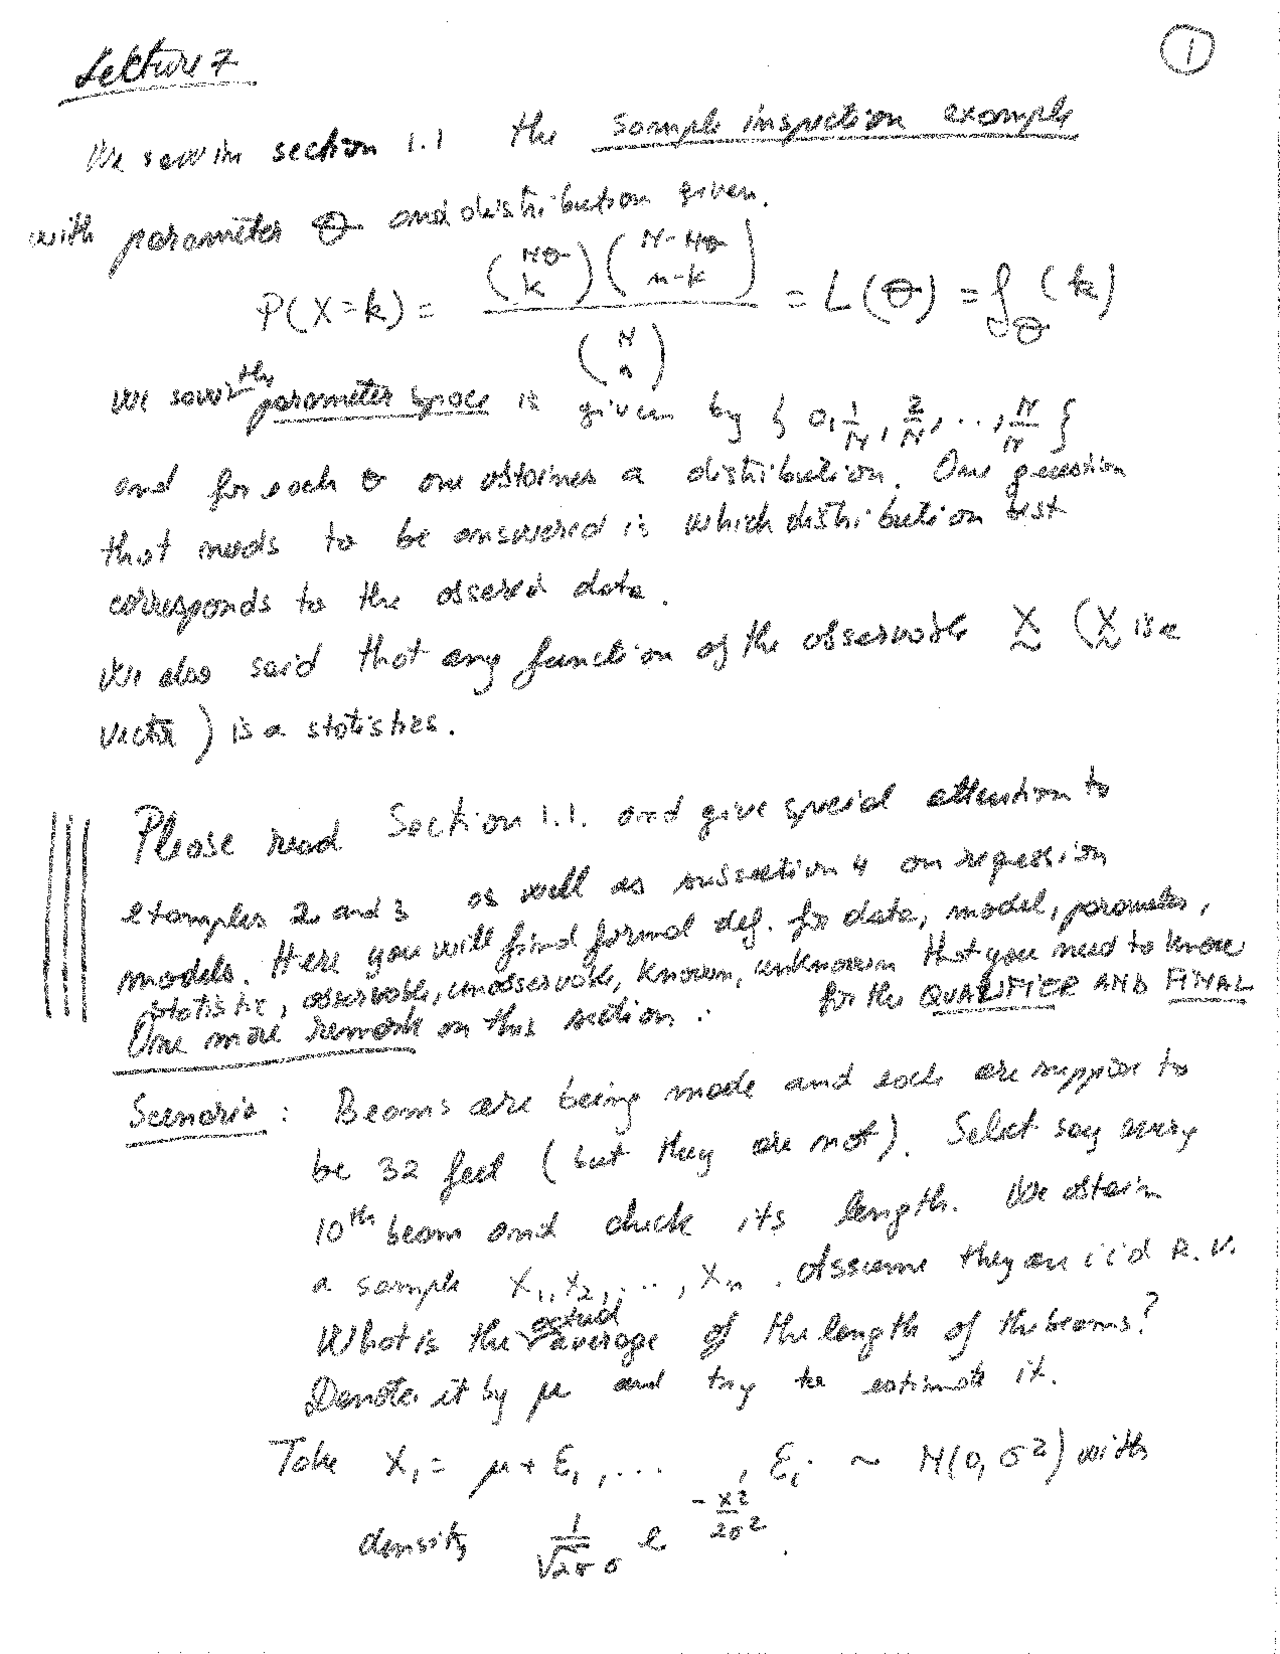 Lecture 7
1
We saw in section 1.1 the sample inspection example
with parameter θ and distribution given.
P(X=k) = \frac{\binom{Nθ}{k}\binom{N-Nθ}{n-k}}{\binom{N}{n}} = L(θ) = f_θ(k)
We saw the parameter space is given by { 0, \frac{1}{N}, \frac{2}{N}, ..., \frac{N}{N} }
and for each θ one obtaines a distribution. One question
that needs to be answered is which distribution best
corresponds to the obsered data.
We also said that any function of the observable X (X is a
vector) is a statistics.
Please read Section 1.1. and give special attention to
examples 2 and 3 as well as subsection 4 on regression
models. Here you will find formal def. for data, model, parameter,
statistic, observable, unobservable, known, unknown that you need to know
for the QUALIFIER AND FINAL
One more remark on this section.
Scenario: Beams are being made and each are suppose to
be 32 feet (but they are not). Select say every
10th beam and check its length. We obtain
a sample X₁, X₂, ..., Xₙ. Assume they are iid R.V.
What is the actual average of the length of the beams?
Denote it by μ and try to estimate it.
Take X₁ = μ + ε₁, ... , εᵢ ~ N(0, σ²) with
density \frac{1}{\sqrt{2π} σ} e^{-\frac{x²}{2σ²}}.